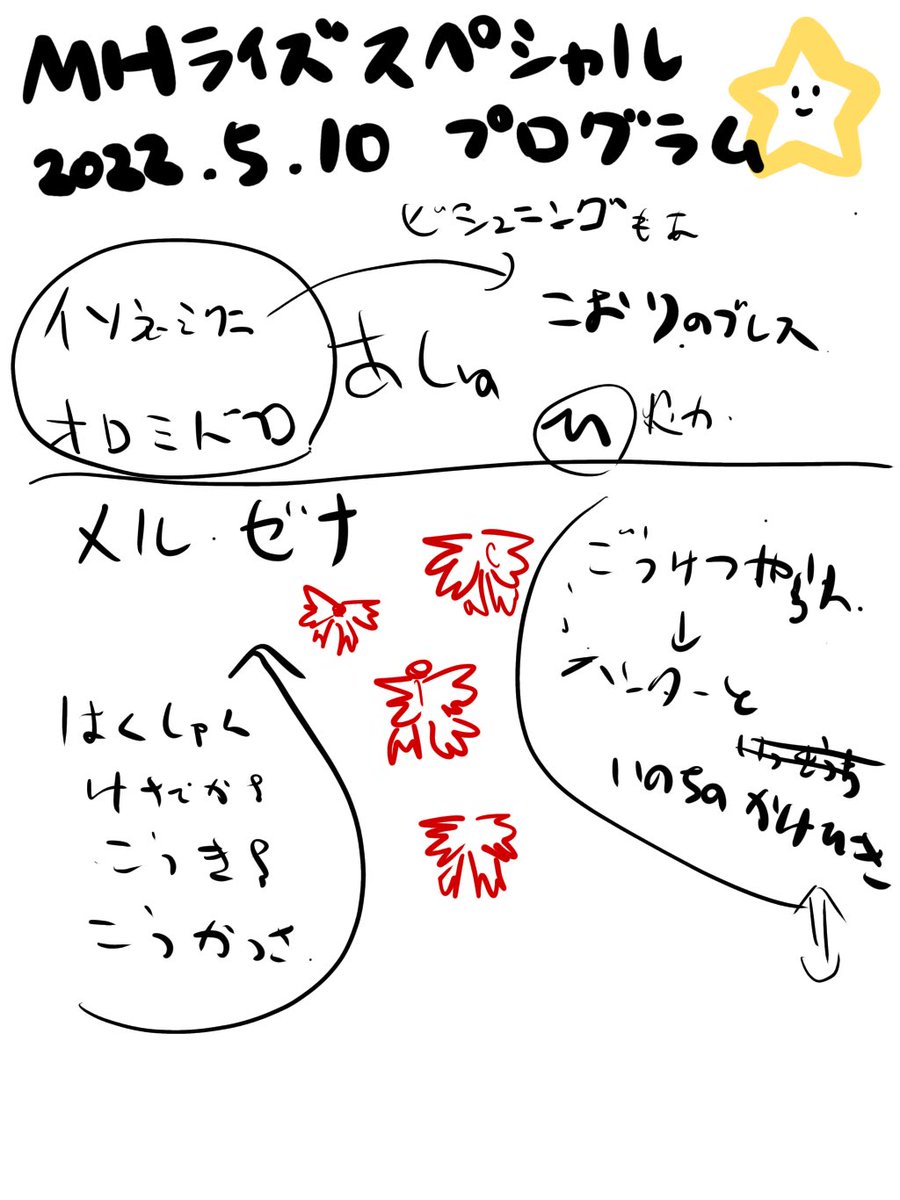 MHライズスペシャル
2022.5.10 プログラム
ビシュニングもあ
イソネミクニ
オロミドロ
あしゅ
こおりのブレス
メル・ゼナ
はくしゃく
けさでか?
ごうき?
こうかつさ
ごうけつ
↓
ハンターと
いのちのかけひき